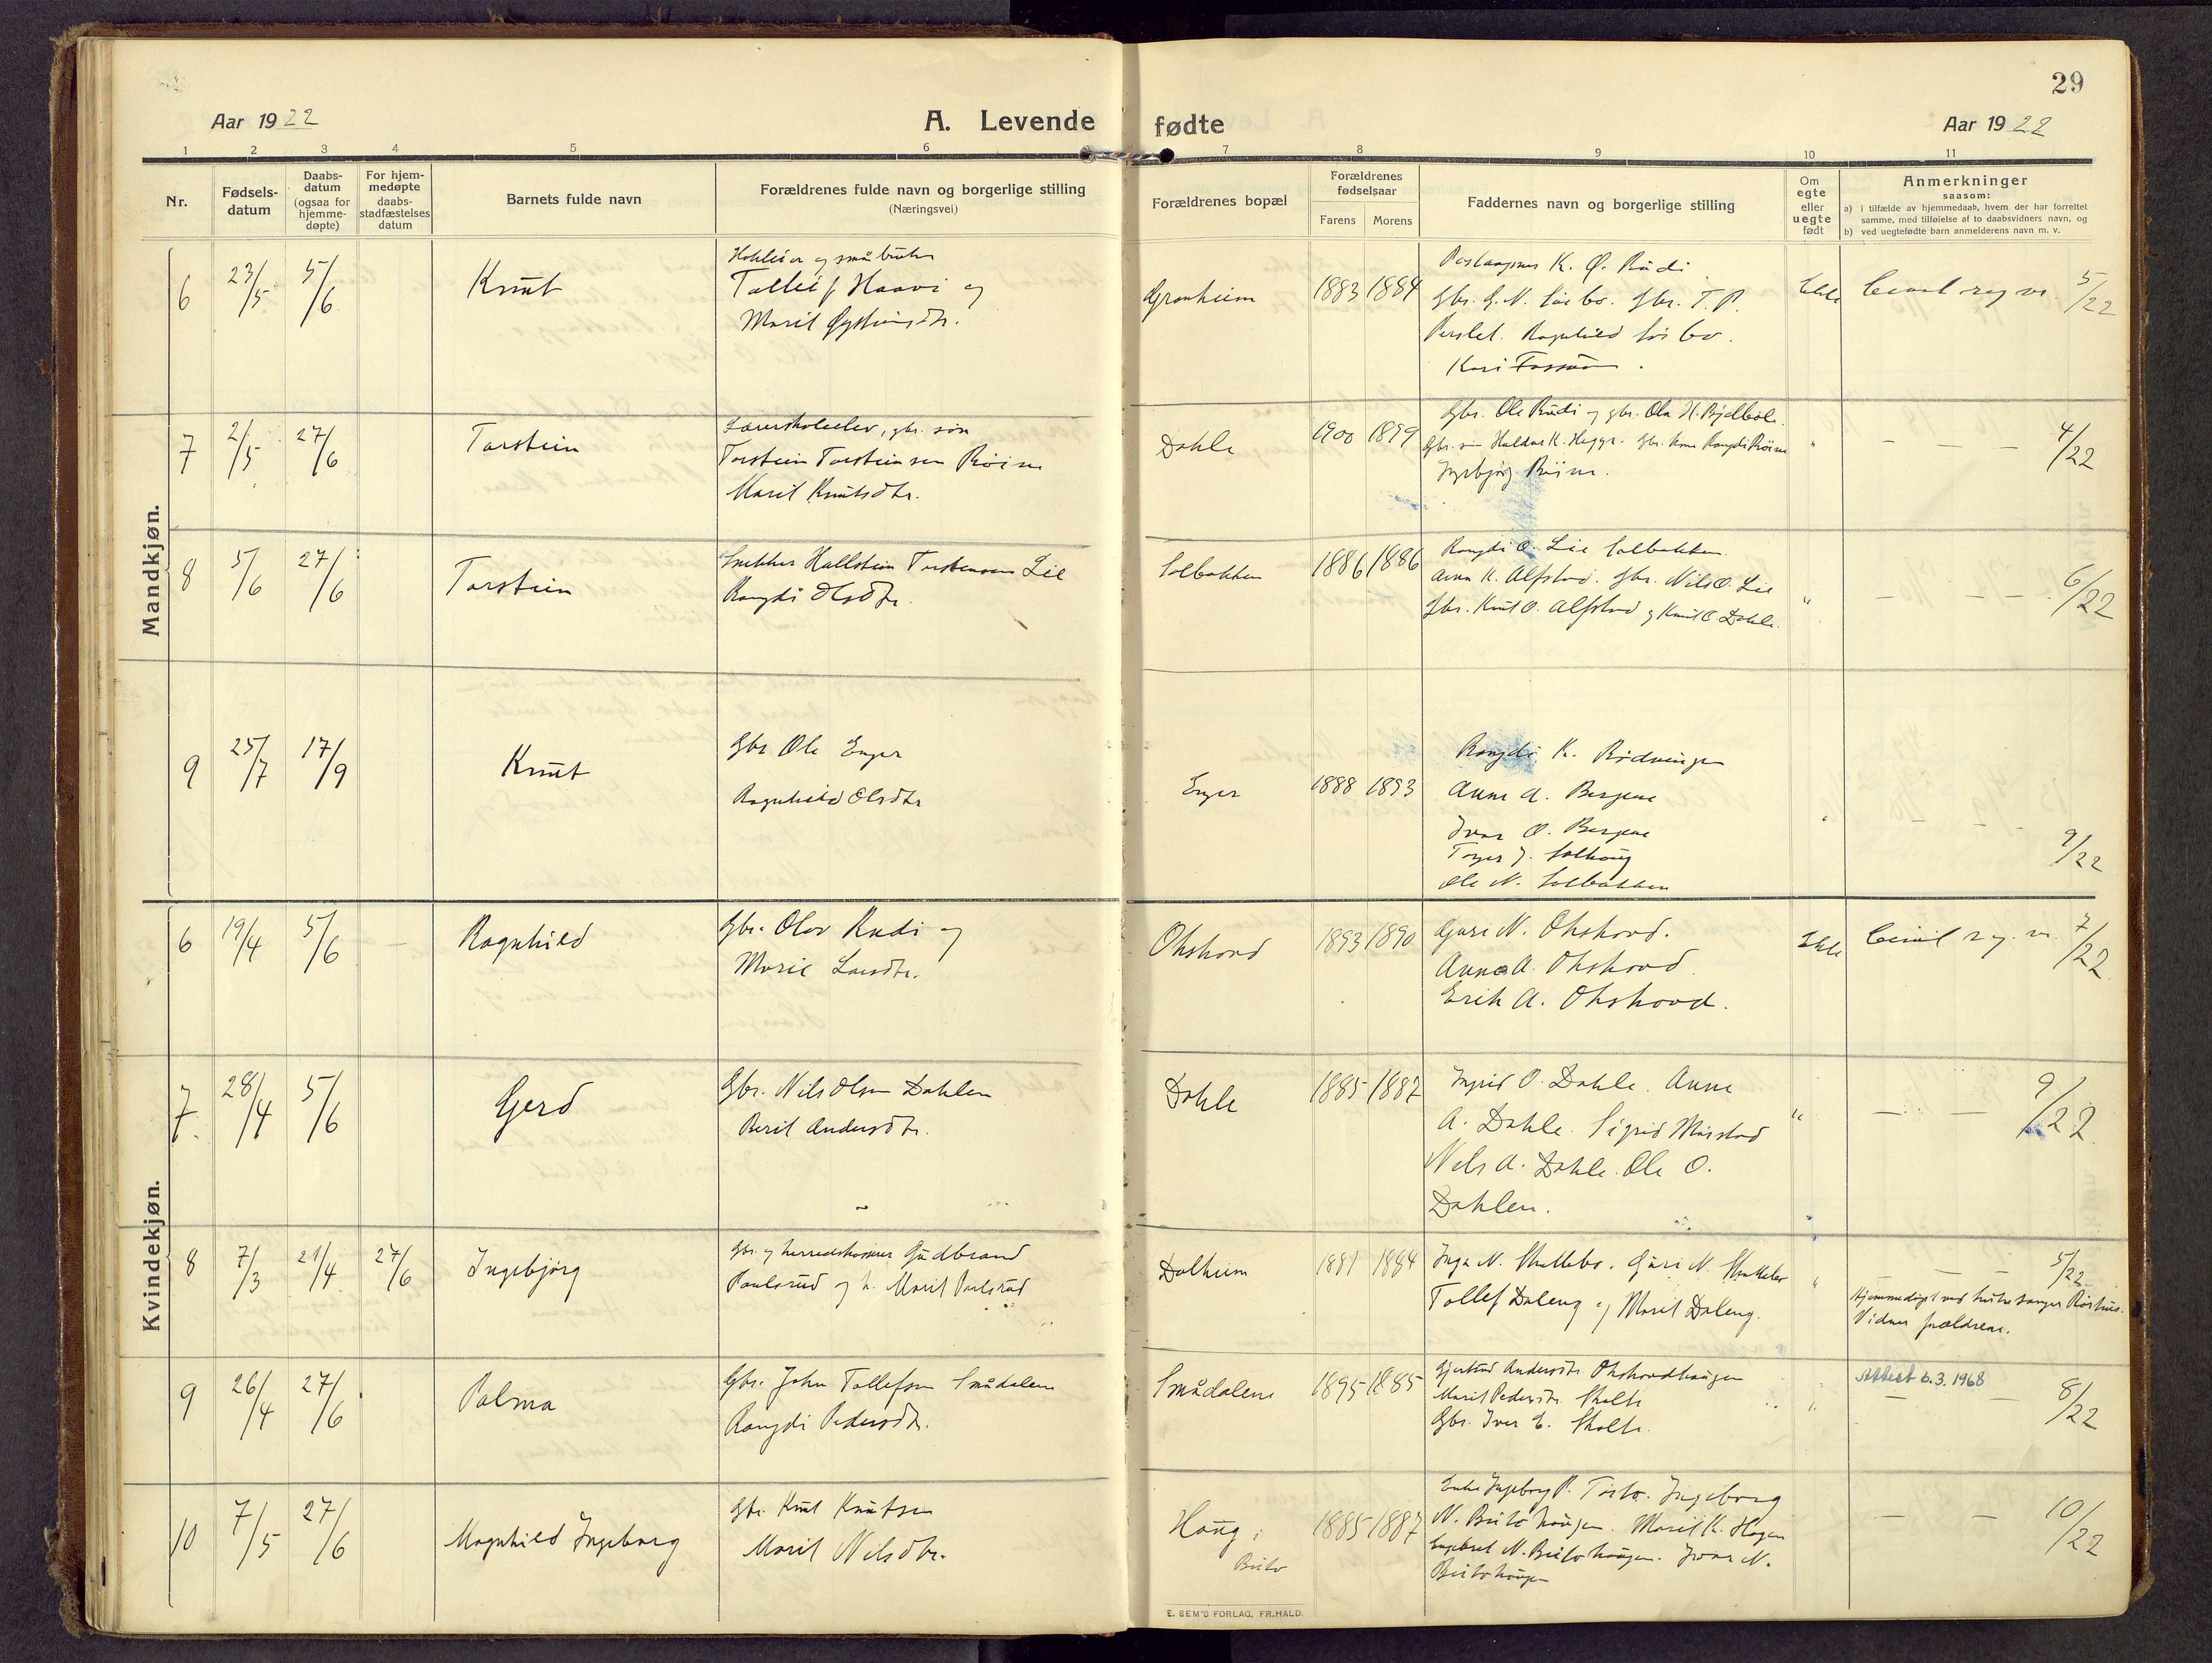 29
Aar 1922
A. Levende fødte
Aar 1922
1 2 3 4 5 6 7 8 9 10 11
Nr.
Fødselsdatum
Daabsdatum (ogsaa for hjemmedøpte)
For hjemmedøpte daabsstadfæstelses datum
Barnets fulde navn
Forældrenes fulde navn og borgerlige stilling
(Næringsvei)
Forældrenes bopæl
Forældrenes fødselsaar
Farens Morens
Faddernes navn og borgerlige stilling
Om egte eller uegte født
Anmerkninger
saasom:
a) i tilfælde av hjemmedaab, hvem der har forrettet
samme, med tilføielse af to daabsvidners navn, og
b) ved uegtefødte barn anmelderens navn m. v.
Mandkjøn.
6 23/5 5/6 Knut
og småbruker
Tollef Haavi og
Marit Øysteinsdtr.
Gronheim 1883 1884
K. O. Rudi
Gbr. G. N. Gbr. T. P.
Perslet. Ragnhild
Kari
Ekte
Civil reg nr. 5/22
7 2/5 27/6 Torstein
Lærerskoleelev, gbr. søn
Torstein Torsteinsen
Marit Knutsdtr.
Dahle 1900 1899
Gbr. Ole Rudi og gbr. Ola H. Bjelbøle.
Gbr. søn Haldor K. Hegge. Gbr. kone Rangdi
Ingebjørg
" — — — 4/22
8 5/6 27/6 Torstein
Snekker Hallstein Torstensen Lie
Rangdi Olsdtr.
Solbakken 1886 1886
Rangdi O. Lie Solbakken
Anna K. Alfstad. Gbr. Nils O. Lie
Gbr. Knut O. Alfstad og Knut O. Dahle.
" — — — 6/22
9 25/7 17/9 Knut
Gbr Ole Enger
Ragnhild Olsdtr
Enger 1888 1893
Rangdi K. Rødningen
Anne A. Bergene
Ivar O. Bergene
J. Solhaug
Ole N. Solbakken
" — — — 9/22
Kvindekjøn.
6 19/4 5/6 — Ragnhild
Gbr. Olav Rudi og
Marit Larsdtr.
Okshovd 1893 1890
Guri N. Okshovd.
Anna A. Okshovd
Erik A. Okshovd.
Ekte
Civil reg. nr. 7/22
7. 28/4 5/6 Gerd
Gbr. Nils Olsen Dahlen
Berit Andersdtr.
Dahle 1885 1887
Ingrid O. Dahle. Anne
A. Dahle. Sigrid
Nils A. Dahle. Ole O.
Dahlen.
" — — 9/22
8 7/3 21/4 27/6 Ingebjørg
Gbr. og herredskasserer Gudbrand
Paulsrud og h. Marit Paulsrud
Dalheim 1881 1884
Inga N. Skattebo. Guri N. Skattebo
Tollef Daleng og Marit Daleng.
" — — 5/22
Hjemmedøpt ved
Vidner forældrene.
9 26/4 27/6 Palma
Gbr. John Tollefsen Smådalene
Rangdi Pedersdtr.
Smådalene 1895 1885
Gjertrud Andersdtr. Okshovdhaugen
Marit Pedersdtr. Skolte
Gbr. Iver E. Skolte.
" Attest 6.3.1968
— — 8/22
10 7/5 27/6 Magnhild Ingeborg
Gbr. Knut Knutsen
Marit Nilsdtr.
Haug i
Beito
1885 1887
Enke Ingeborg P. Ingeborg
N. Beitohaugen. Marit K. Hagen
Engebret N. Beitohaugen. Ivar N.
Beitohaugen
— — 10/22
E. SEM'S FORLAG, FR.HALD.